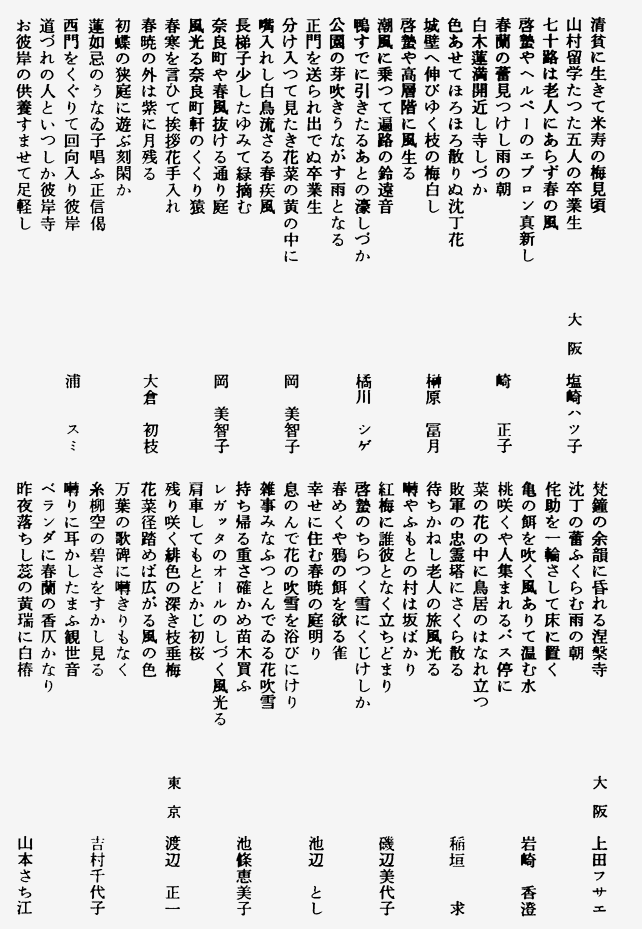 清貧に生きて米寿の梅見頃
山村留学たつた五人の卒業生　大阪　塩崎ハツ子
七十路は老人にあらず春の風
啓蟄やヘルパーのエプロン真新し
春蘭の蕾見つけし雨の朝　崎　正子
白木蓮満開近し寺しづか
色あせてほろほろ散りぬ沈丁花
城壁へ伸びゆく枝の梅白し　榊原　冨月
啓蟄や高層階に風生る
潮風に乗つて遍路の鈴遠音
鴨すでに引きたるあとの濠しづか　橘川　シゲ
公園の芽吹きうながす雨となる
正門を送られ出でぬ卒業生
分け入つて見たき花菜の黄の中に　岡　美智子
嘴入れし白鳥流さる春疾風
長梯子少したゆみて緑摘む
奈良町や春風抜ける通り庭　岡　美智子
風光る奈良町軒のくくり猿
春寒を言ひて挨拶花手入れ
春暁の外は紫に月残る　大倉　初枝
初蝶の狭庭に遊ぶ刻閑か
蓮如忌のうなゐ子唱ふ正信偈
西門をくぐりて回向入り彼岸　浦　スミ
道づれの人といつしか彼岸寺
お彼岸の供養すませて足軽し
梵鐘の余韻に昏れる涅槃寺　大阪　上田フサエ
沈丁の蕾ふくらむ雨の朝
侘助を一輪さして床に置く
亀の餌を吹く風ありて温む水　岩崎　香澄
桃咲くや人集まれるバス停に
菜の花の中に鳥居のはなれ立つ
敗軍の忠霊塔にさくら散る　稲垣　求
待ちかねし老人の旅風光る
囀やふもとの村は坂ばかり
紅梅に誰彼となく立ちどまり　磯辺美代子
啓蟄のちらつく雪にくじけしか
春めくや鴉の餌を欲る雀
幸せに住む春暁の庭明り　池辺　とし
息のんで花の吹雪を浴びにけり
雑事みなふつとんでゐる花吹雪
持ち帰る重さ確かめ苗木買ふ　池條恵美子
レガッタのオールのしづく風光る
肩車してもとどかじ初桜
残り咲く緋色の深き枝垂梅　東京　渡辺　正一
花菜径踏めば広がる風の色
万葉の歌碑に囀きりもなく
糸柳空の碧さをすかし見る　吉村千代子
囀りに耳かしたまふ観世音
ベランダに春蘭の香仄かなり
昨夜落ちし蕊の黄瑞に白椿　山本さち江